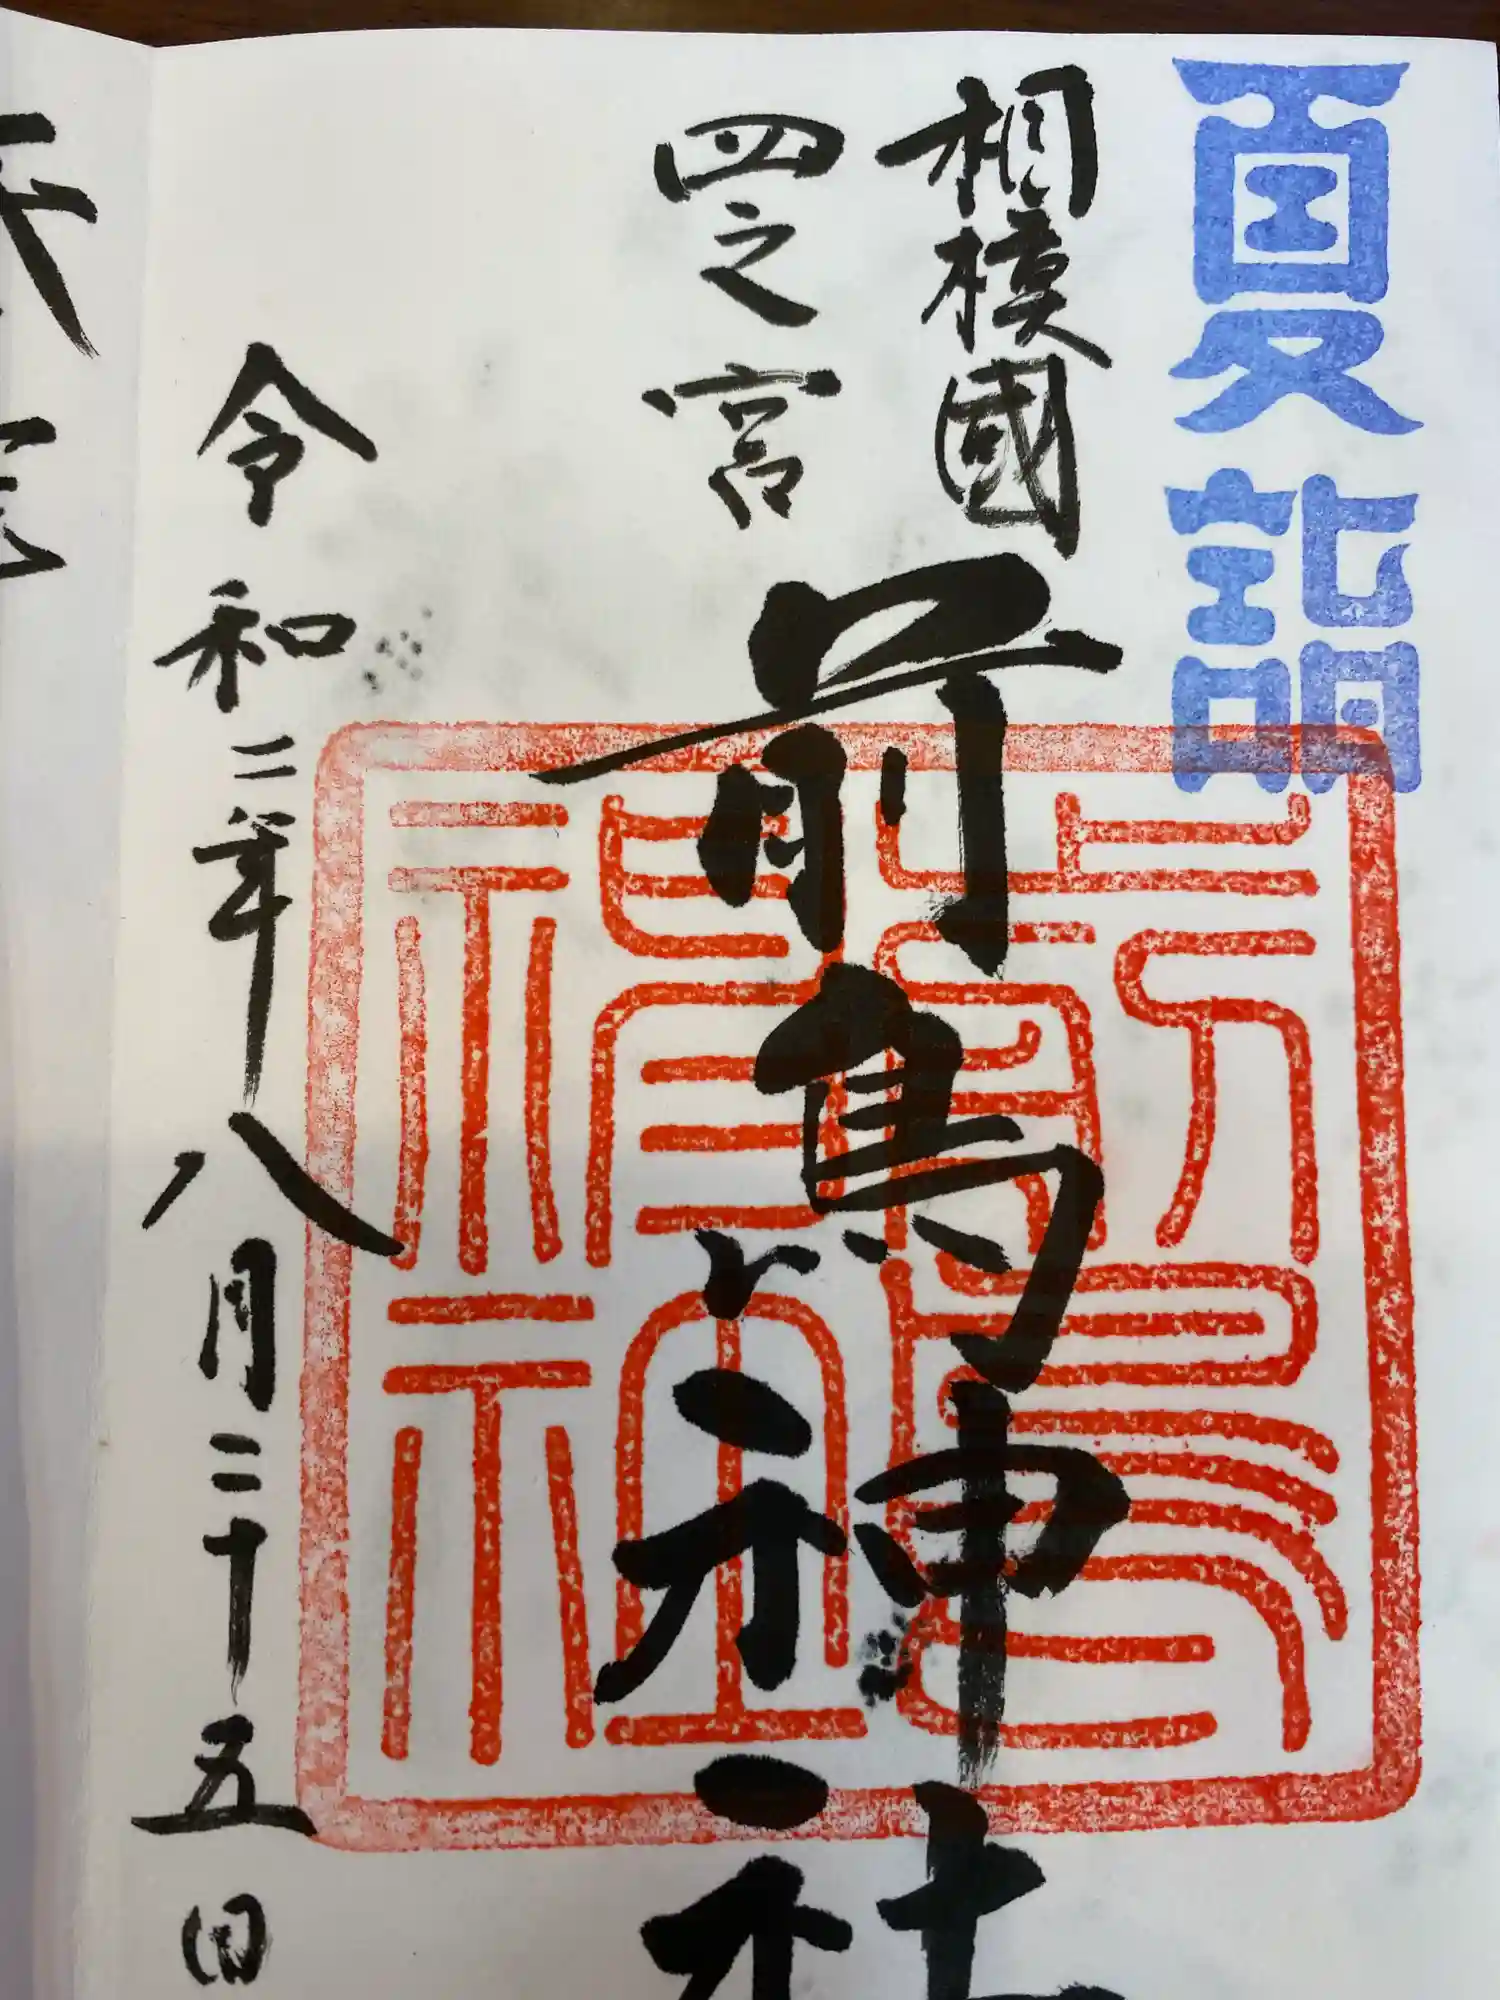 夏詣
相模國
四之宮
前鳥神社
令和二年八月二十五日
前鳥神社